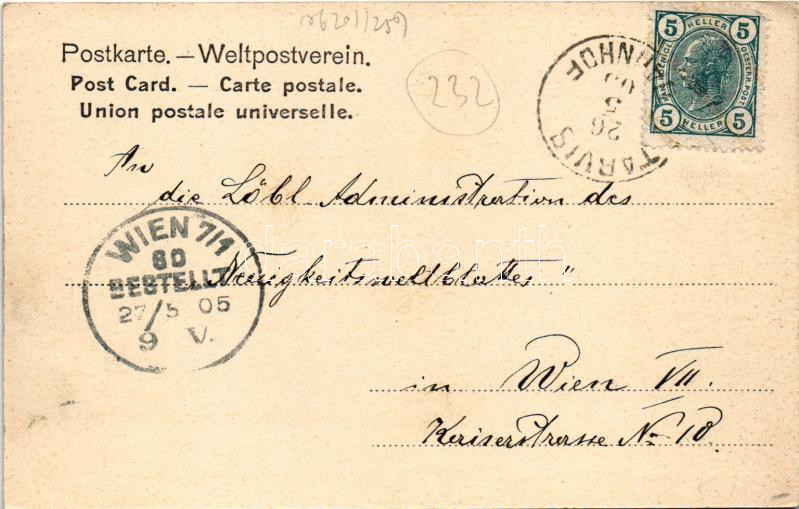 232
Postkarte. — Weltpostverein.
Post Card. — Carte postale.
Union postale universelle.
5 HELLER 5
KAIS. KÖNIGL. OESTERR. POST
5 HELLER 5
TARVIS BAHNHOF
26 5 05
An
die Löbl Administration des
„Neuigkeitsweltblattes"
in Wien VII.
Kaiserstrasse No 10.
WIEN 7/1
60
BESTELLT
27/5 05
9 V.
darabanth